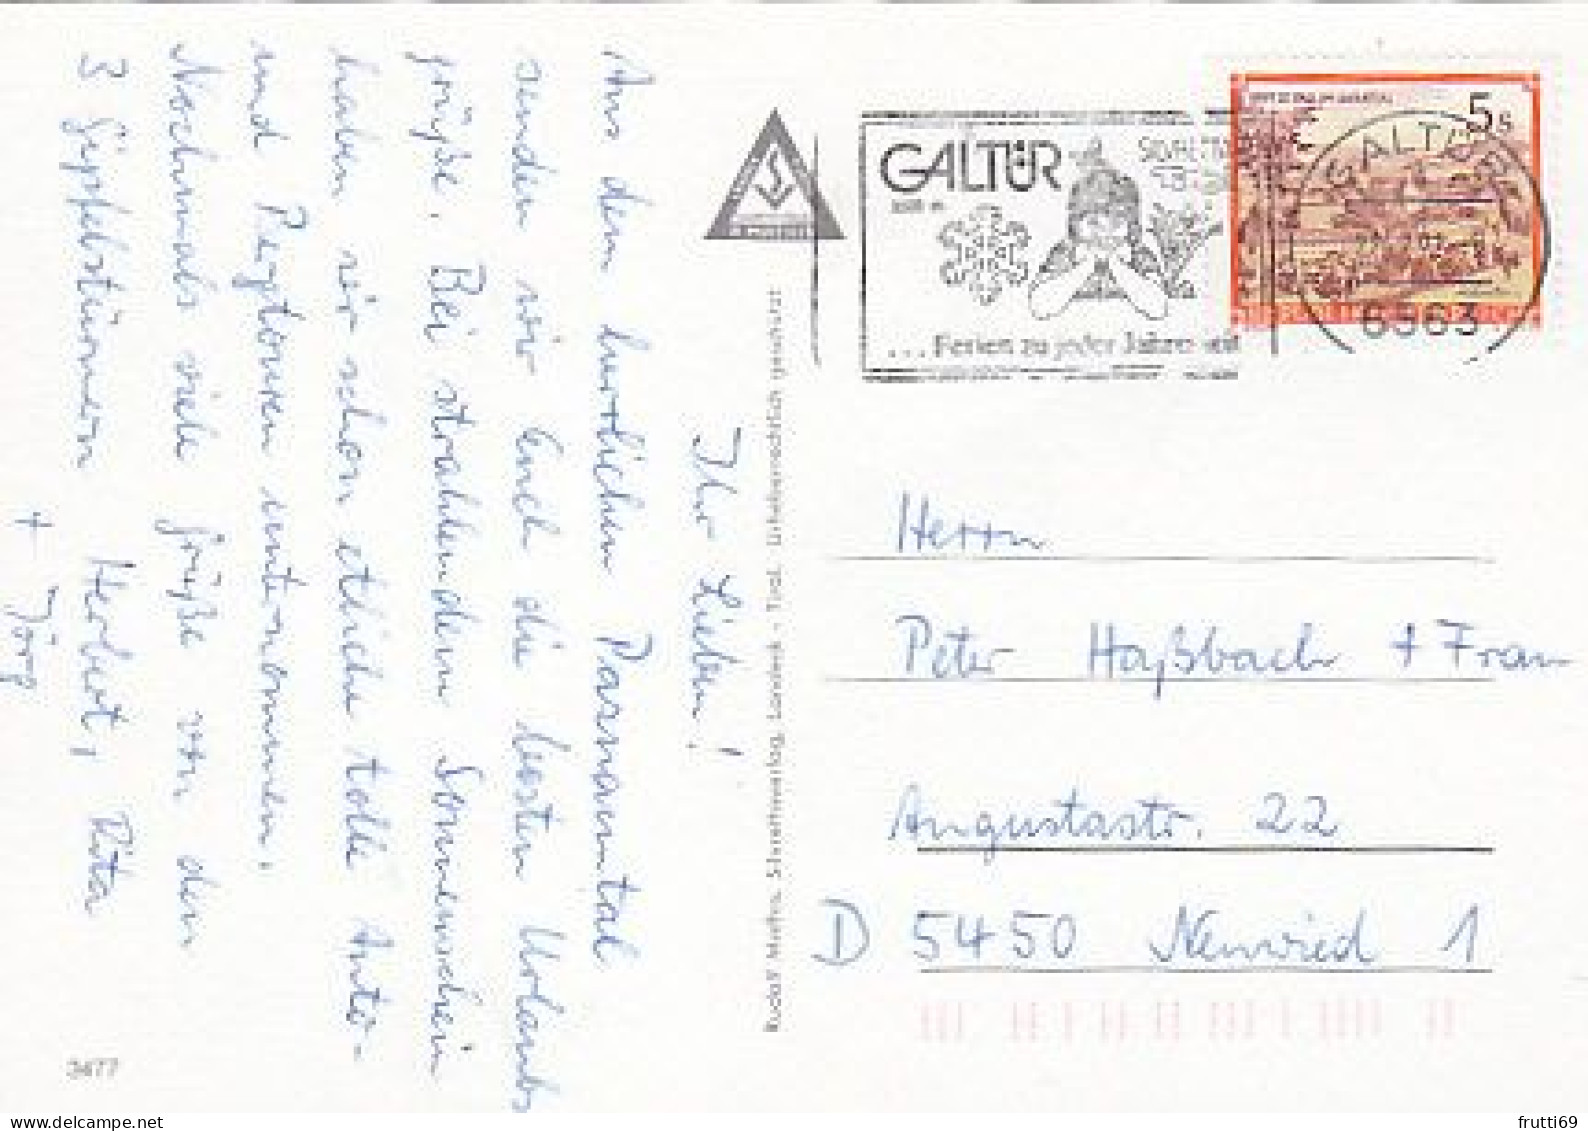 Ihr Lieben!
Aus dem herrlichen Paznauntal
senden wir Euch die besten Urlaubs
grüße. Bei strahlendem Sonnenschein
haben wir schon etliche tolle Auto-
und Bergtouren unternommen.
Nochmals viele Grüße von den
3 Gipfelstürmern Herbert, Rita
+ Jörg
3477
Rudolf Mathis, Silvrettaverlag, Landeck - Tirol. Urheberrechtlich geschützt
GALTÜR
... Ferien zu jeder Jahreszeit
5 S
GALTÜR
6563
Herrn
Peter Haßbach + Frau
Augustastr. 22
D 5450 Neuwied 1
frutti69